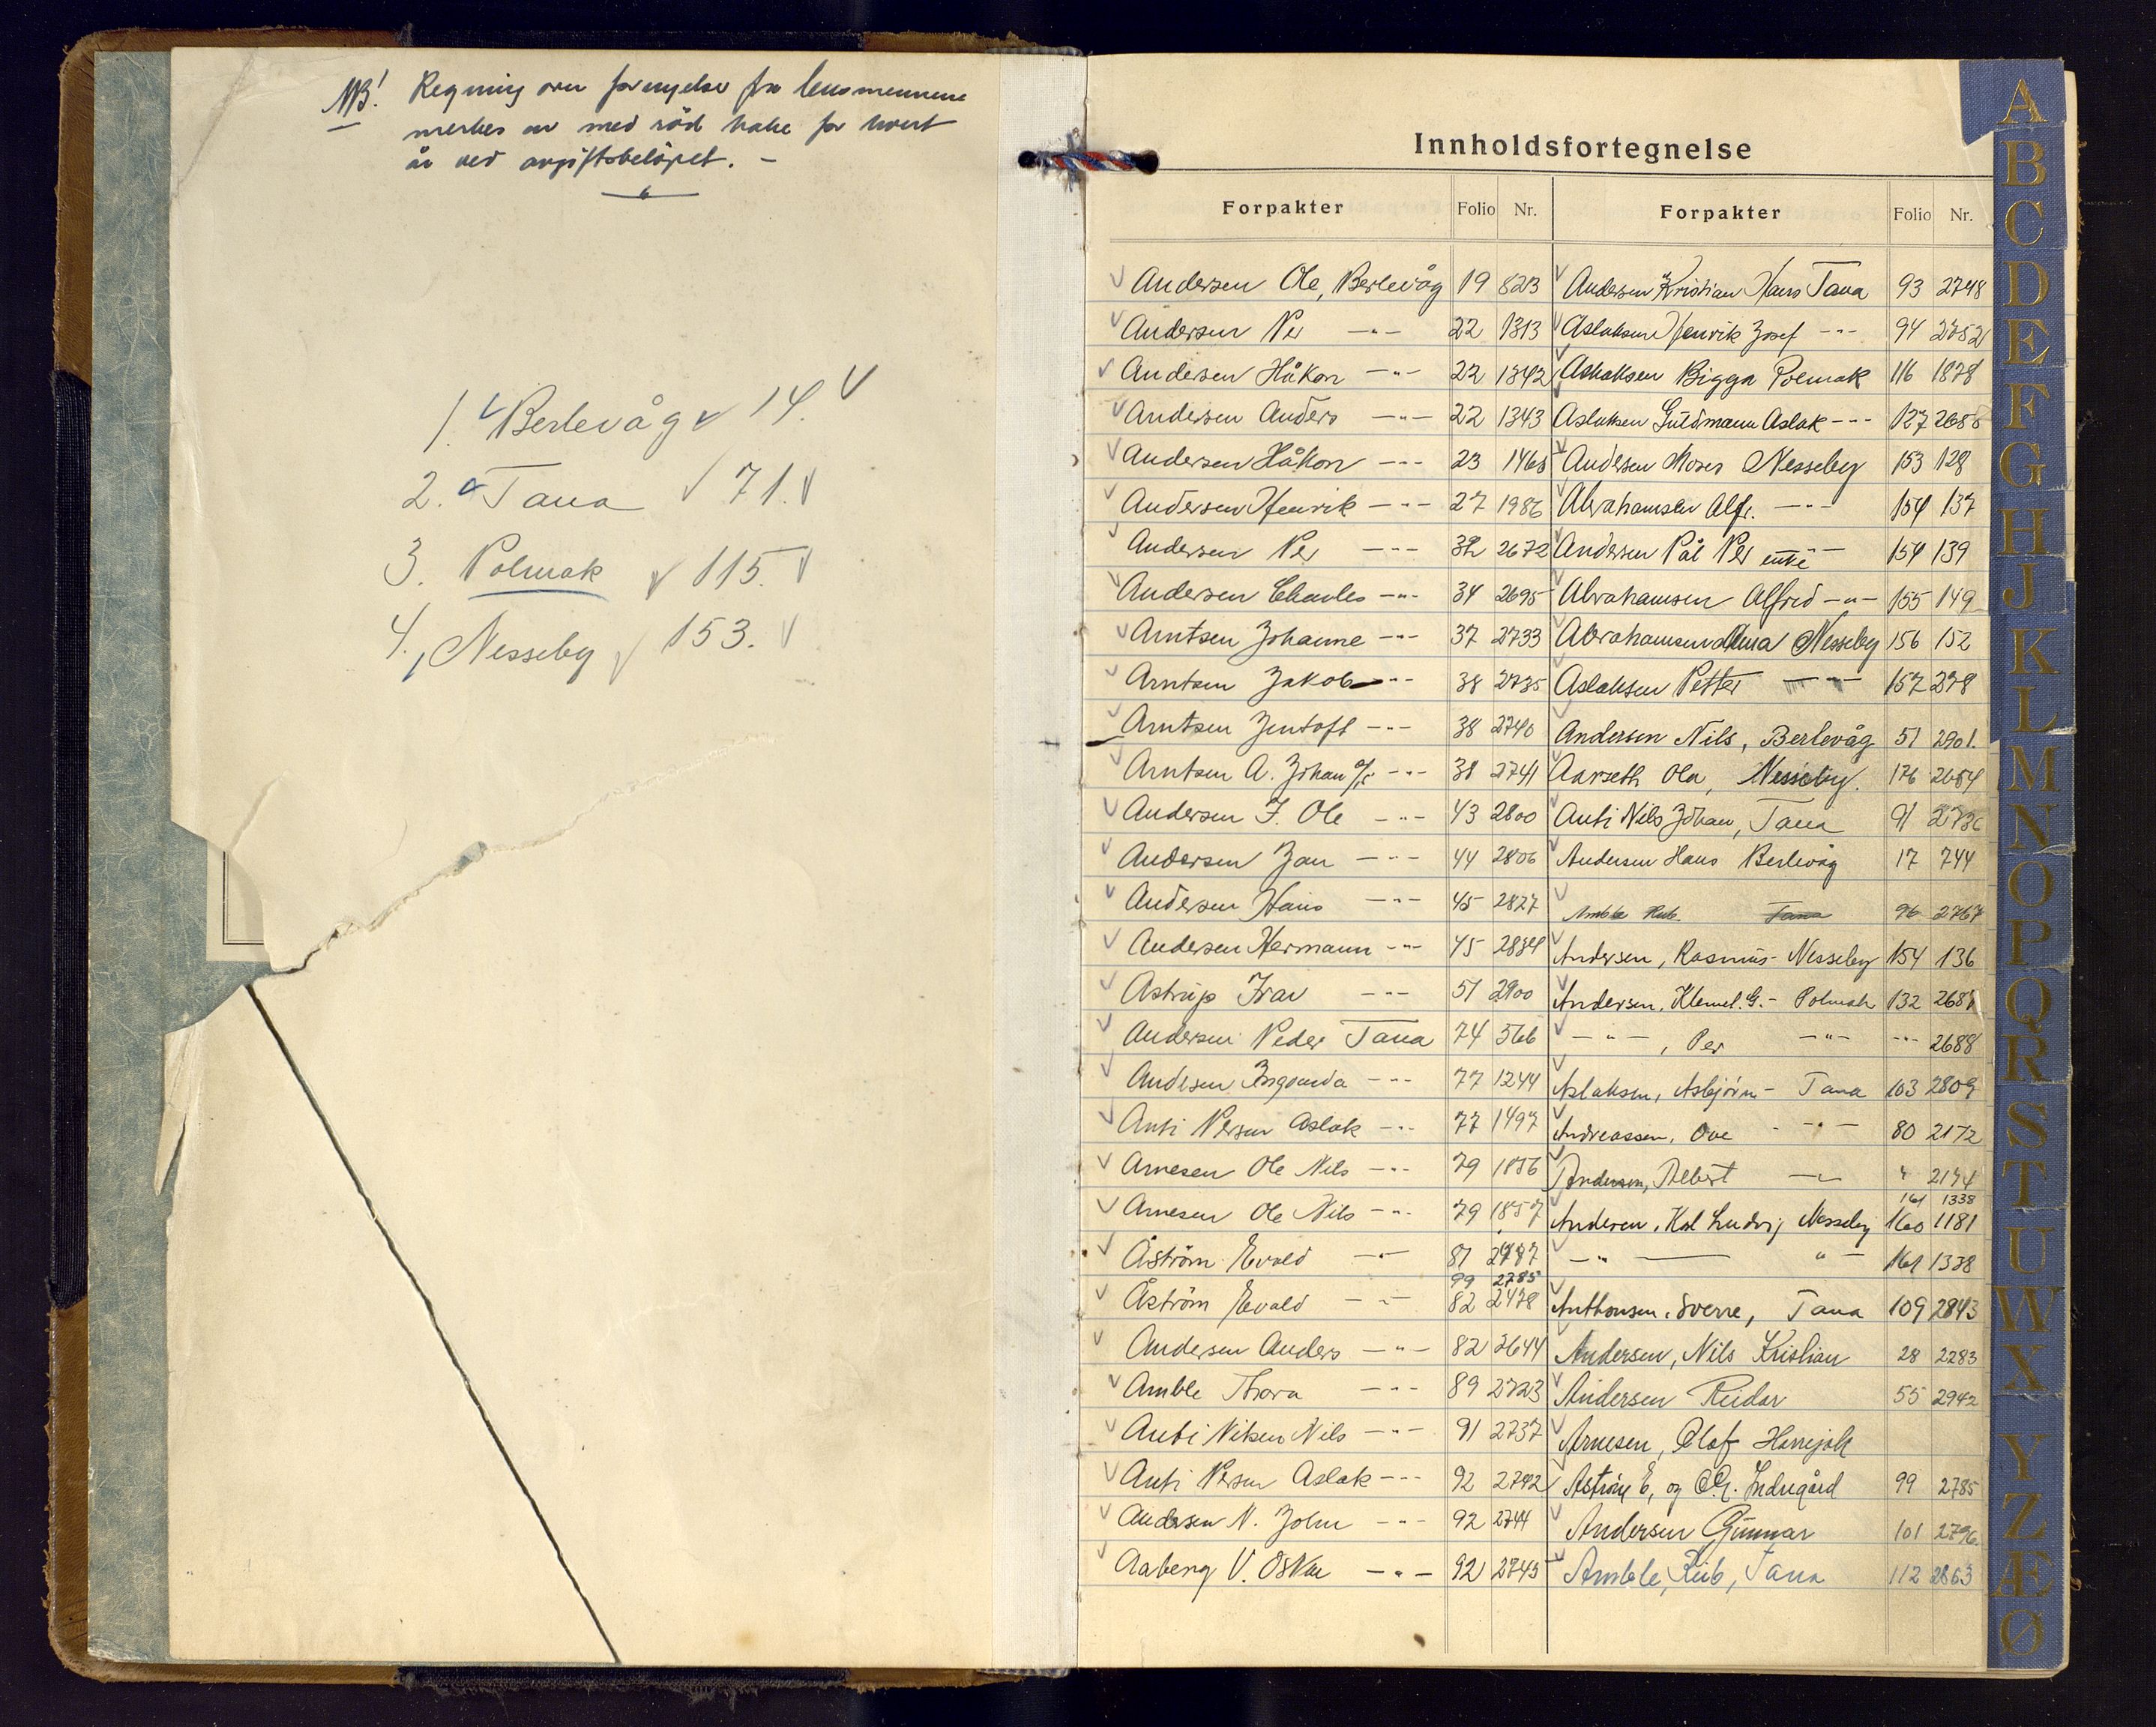 NB! Regning over fornyelse fra lensmennene
merkes av med röd hake for hvert
år ved avgiftsbelöpet. —
1. Berlevåg 14.
2. Tana 71.
3. Polmak 115.
4. Nesseby 153.
Innholdsfortegnelse
Forpakter Folio Nr.
Andersen Ole, Berlevåg 19 823
Andersen Per —"— 22 1313
Andersen Håkon —"— 22 1342
Andersen Anders —"— 22 1343
Andersen Håkon —"— 23 1465
Andersen Henrik —"— 27 1986
Andersen Per —"— 32 2672
Andersen Charles —"— 34 2695
Arntsen Johanne —"— 37 2733
Arntsen Jakob —"— 38 2735
Arntsen Jentoft —"— 38 2740
Arntsen A. Johan —"— 38 2741
Andersen J. Ole —"— 43 2800
Andersen Jan —"— 44 2806
Andersen Hans —"— 45 2827
Andersen Hermann —"— 45 2834
Astrup Ivar —"— 51 2900
Andersen Peder Tana 74 566
Andersen Ingvarda —"— 77 1244
Anti Persen Aslak —"— 77 1497
Arnesen Ole Nils —"— 79 1856
Arnesen Ole Nils —"— 79 1857
Åström Evald —"— 81 2477
99 2785
Åström Evald —"— 82 2478
Andersen Anders —"— 82 2644
Amble Thora —"— 89 2723
Anti Nilsen Nils —"— 91 2737
Anti Persen Aslak —"— 92 2742
Andersen N. John —"— 92 2744
Aaberg V. Oskar —"— 92 2745
Forpakter Folio Nr.
Andersen Kristian Hans Tana 93 2748
Aslaksen Henrik Josef —"— 94 2752
Aslaksen Bigga Polmak 116 1878
Aslaksen Guldmann Aslak —"— 127 2658
Andersen Moses Nesseby 153 128
Abrahamsen Alfr. —"— 154 137
Andersen Pål Per enke —"— 154 139
Abrahamsen Alfred —"— 155 149
Abrahamsen Anna Nesseby 156 152
Aslaksen Petter —"— 157 278
Andersen Nils, Berlevåg 51 2901.
Aarseth Ola, Nesseby. 176 2654
Anti Nils Johan, Tana 91 2736
Andersen Hans Berlevåg 17 744
Amble Rub. Tana 96 2767
Andersen, Rasmus - Nesseby 154 136
Andersen, Klemet. G. - Polmak 132 2687
—"—, Per —"— —"— 2688
Aslaksen, Asbjörn - Tana 103 2809
Andreassen, Ove —"— 80 2172
Andersen, Albert —"— " 2174
161 1338
Andersen, Karl Ludvig Nesseby 160 1181
—"— " — 161 1338
Anthonsen, Sverre, Tana 109 2843
Andersen, Nils Kristian 28 2283
Andersen Reidar 55 2942
Arnesen, Olaf Harrejok
Åström E, og O. G. Indregård 99 2785
Andersen Gunnar 101 2796.
Amble, Rub, Tana 112 2863
A
B
C
D
E
F
G
H
J
K
L
M
N
O
P
Q
R
S
T
U
W
X
Y
Z
Æ
Ø